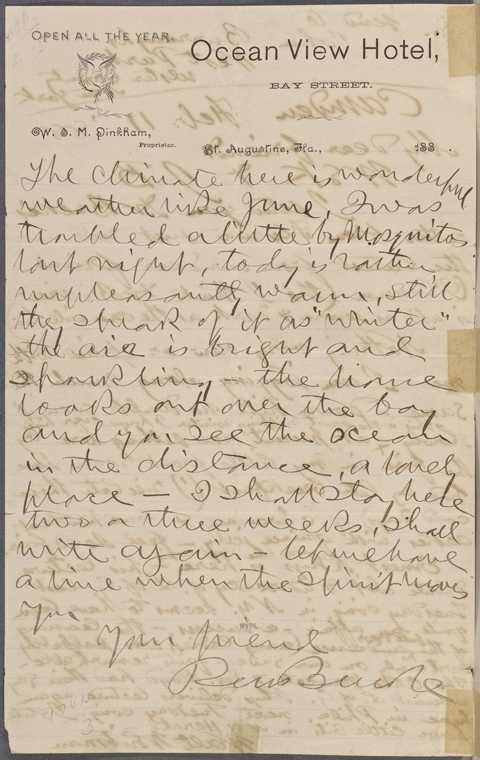 OPEN ALL THE YEAR.
Ocean View Hotel,
BAY STREET.
W. S. M. Pinkham,
Proprietor.
St. Augustine, Fla., 188 .
The climate here is wonderful
weather like June, I was
troubled a little by Mosquitos
last night, today is rather
unpleasantly warm, still
they speak of it as "winter"
the air is bright and
sparkling – the house
looks out over the bay
and you see the ocean
in the distance, a lovely
place – I shall stay here
two or three weeks, shall
write again – let me have
a line when the spirit moves
you
Your friend